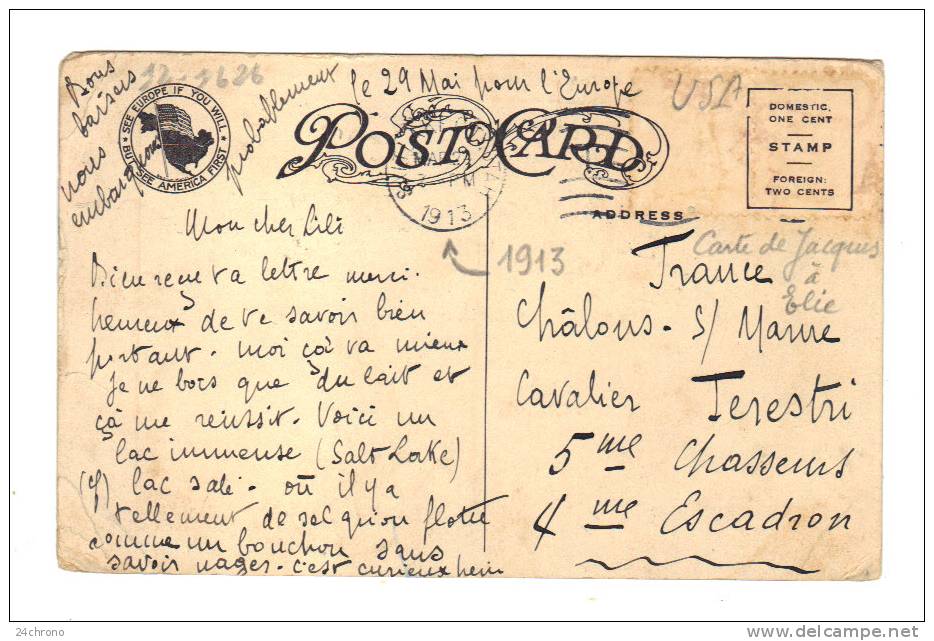 Bons
baisers
nous
embarquons
probablement
le 29 Mai pour l'Europe
12-1626
SEE EUROPE IF YOU WILL
BUT SEE AMERICA FIRST
POST CARD
1913
PM
USA
DOMESTIC,
ONE CENT
STAMP
FOREIGN:
TWO CENTS
ADDRESS
Mon cher Lili
Bien reçu ta lettre merci.
heureux de te savoir bien
portant. moi çà va mieux
je ne bois que du lait et
çà me réussit. Voici un
lac immense (Salt Lake)
lac salé. où il y a
tellement de sel qu'on flotte
comme un bouchon sans
savoir nager. c'est curieux hein
1913
Carte de Jacques
à
Elie
France
Châlons. s/ Marne
Cavalier Terestri
5 me Chasseurs
4 me Escadron
24chrono
www.delcampe.net